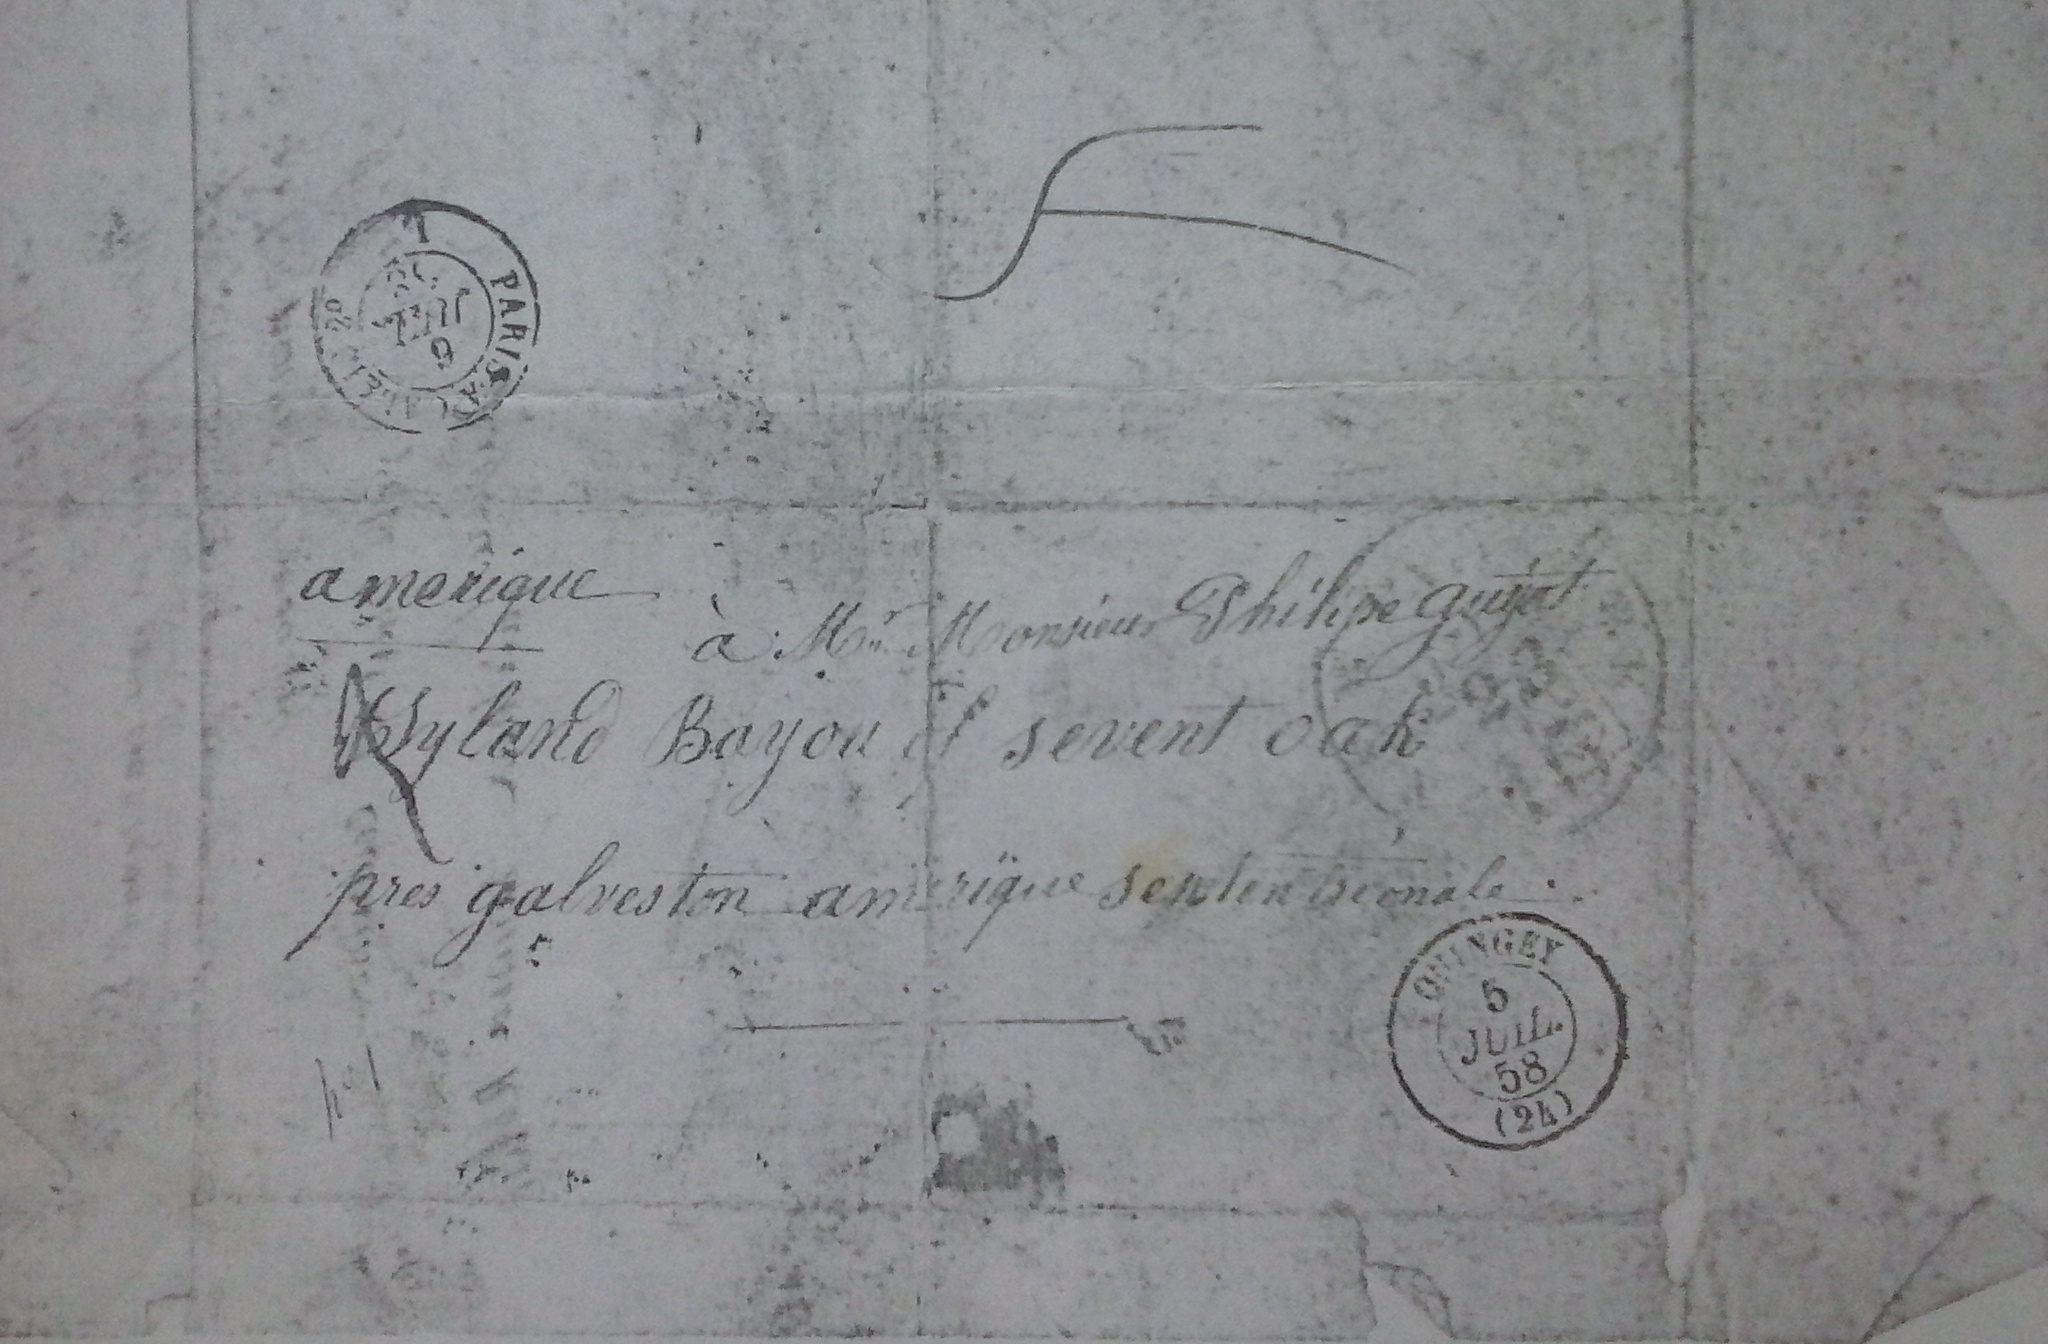 PARIS
6
JUIL.
amerique
à Mr Monsieur Philipe guyot
Hyland Bayou of sevent oak
pres galveston amerique septentrionale
QUINGEY
5
JUIL.
58
(24)